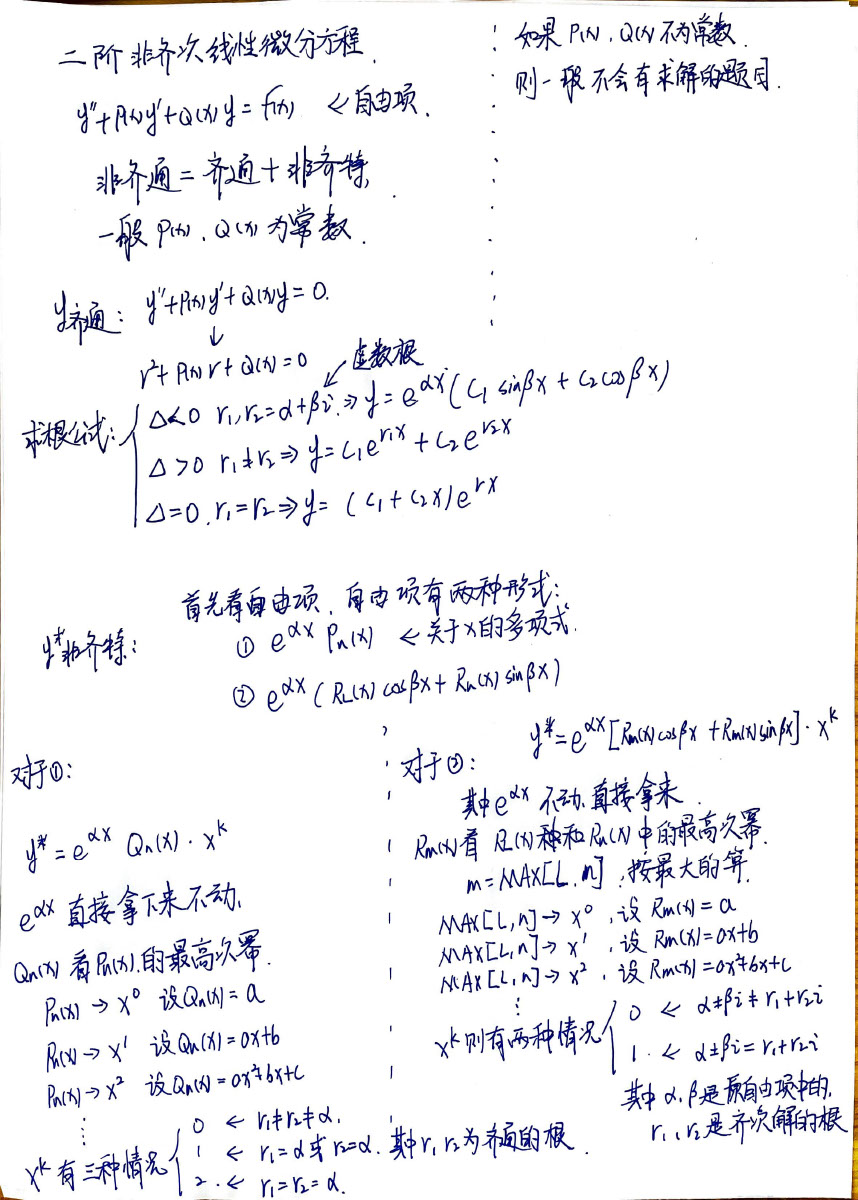 二阶非齐次线性微分方程.
y''+P(x)y'+Q(x)y=f(x) ← 自由项.
非齐通=齐通+非齐特,
一般 P(x)、Q(x) 为常数.
如果 P(x)、Q(x) 不为常数.
则一般不会有求解的题目.
y齐通: y''+P(x)y'+Q(x)y=0.
↓
r²+P(x)r+Q(x)=0 虚数根
求根公式:
Δ<0 r₁,r₂=α+βi ⇒ y=e^{αx}(C₁sinβx+C₂cosβx)
Δ>0 r₁≠r₂ ⇒ y=C₁e^{r₁x}+C₂e^{r₂x}
Δ=0. r₁=r₂ ⇒ y=(C₁+C₂x)e^{rx}
首先看自由项、自由项有两种形式:
y*非齐特:
① e^{αx} Pn(x) ← 关于x的多项式.
② e^{αx}(PL(x)cosβx+Rn(x)sinβx)
对于①:
y*=e^{αx} Qn(x)·x^k
e^{αx} 直接拿下来不动,
Qn(x) 看 Pn(x) 的最高次幂.
Pn(x)→x⁰ 设Qn(x)=a
Pn(x)→x¹ 设Qn(x)=ax+b
Pn(x)→x² 设Qn(x)=ax²+bx+c
⋮
x^k 有三种情况
0 ← r₁≠r₂≠α.
1 ← r₁=α或r₂=α. 其中r₁ r₂为齐通的根.
2. ← r₁=r₂=α.
y*=e^{αx}[Rm(x)cosβx+Rm(x)sinβx]·x^k
对于②:
其中e^{αx} 不动、直接拿来.
Rm(x) 看 PL(x)种和Rn(x)中的最高次幂.
m=MAX[L,n],按最大的算.
MAX[L,n]→x⁰,设 Rm(x)=a
MAX[L,n]→x¹,设 Rm(x)=ax+b
MAX[L,n]→x²,设 Rm(x)=ax²+bx+c
⋮
x^k则有两种情况
0 ← α±βi≠r₁+r₂i
1. ← α±βi=r₁+r₂i
其中α、β是原自由项中的,
r₁、r₂是齐次解的根